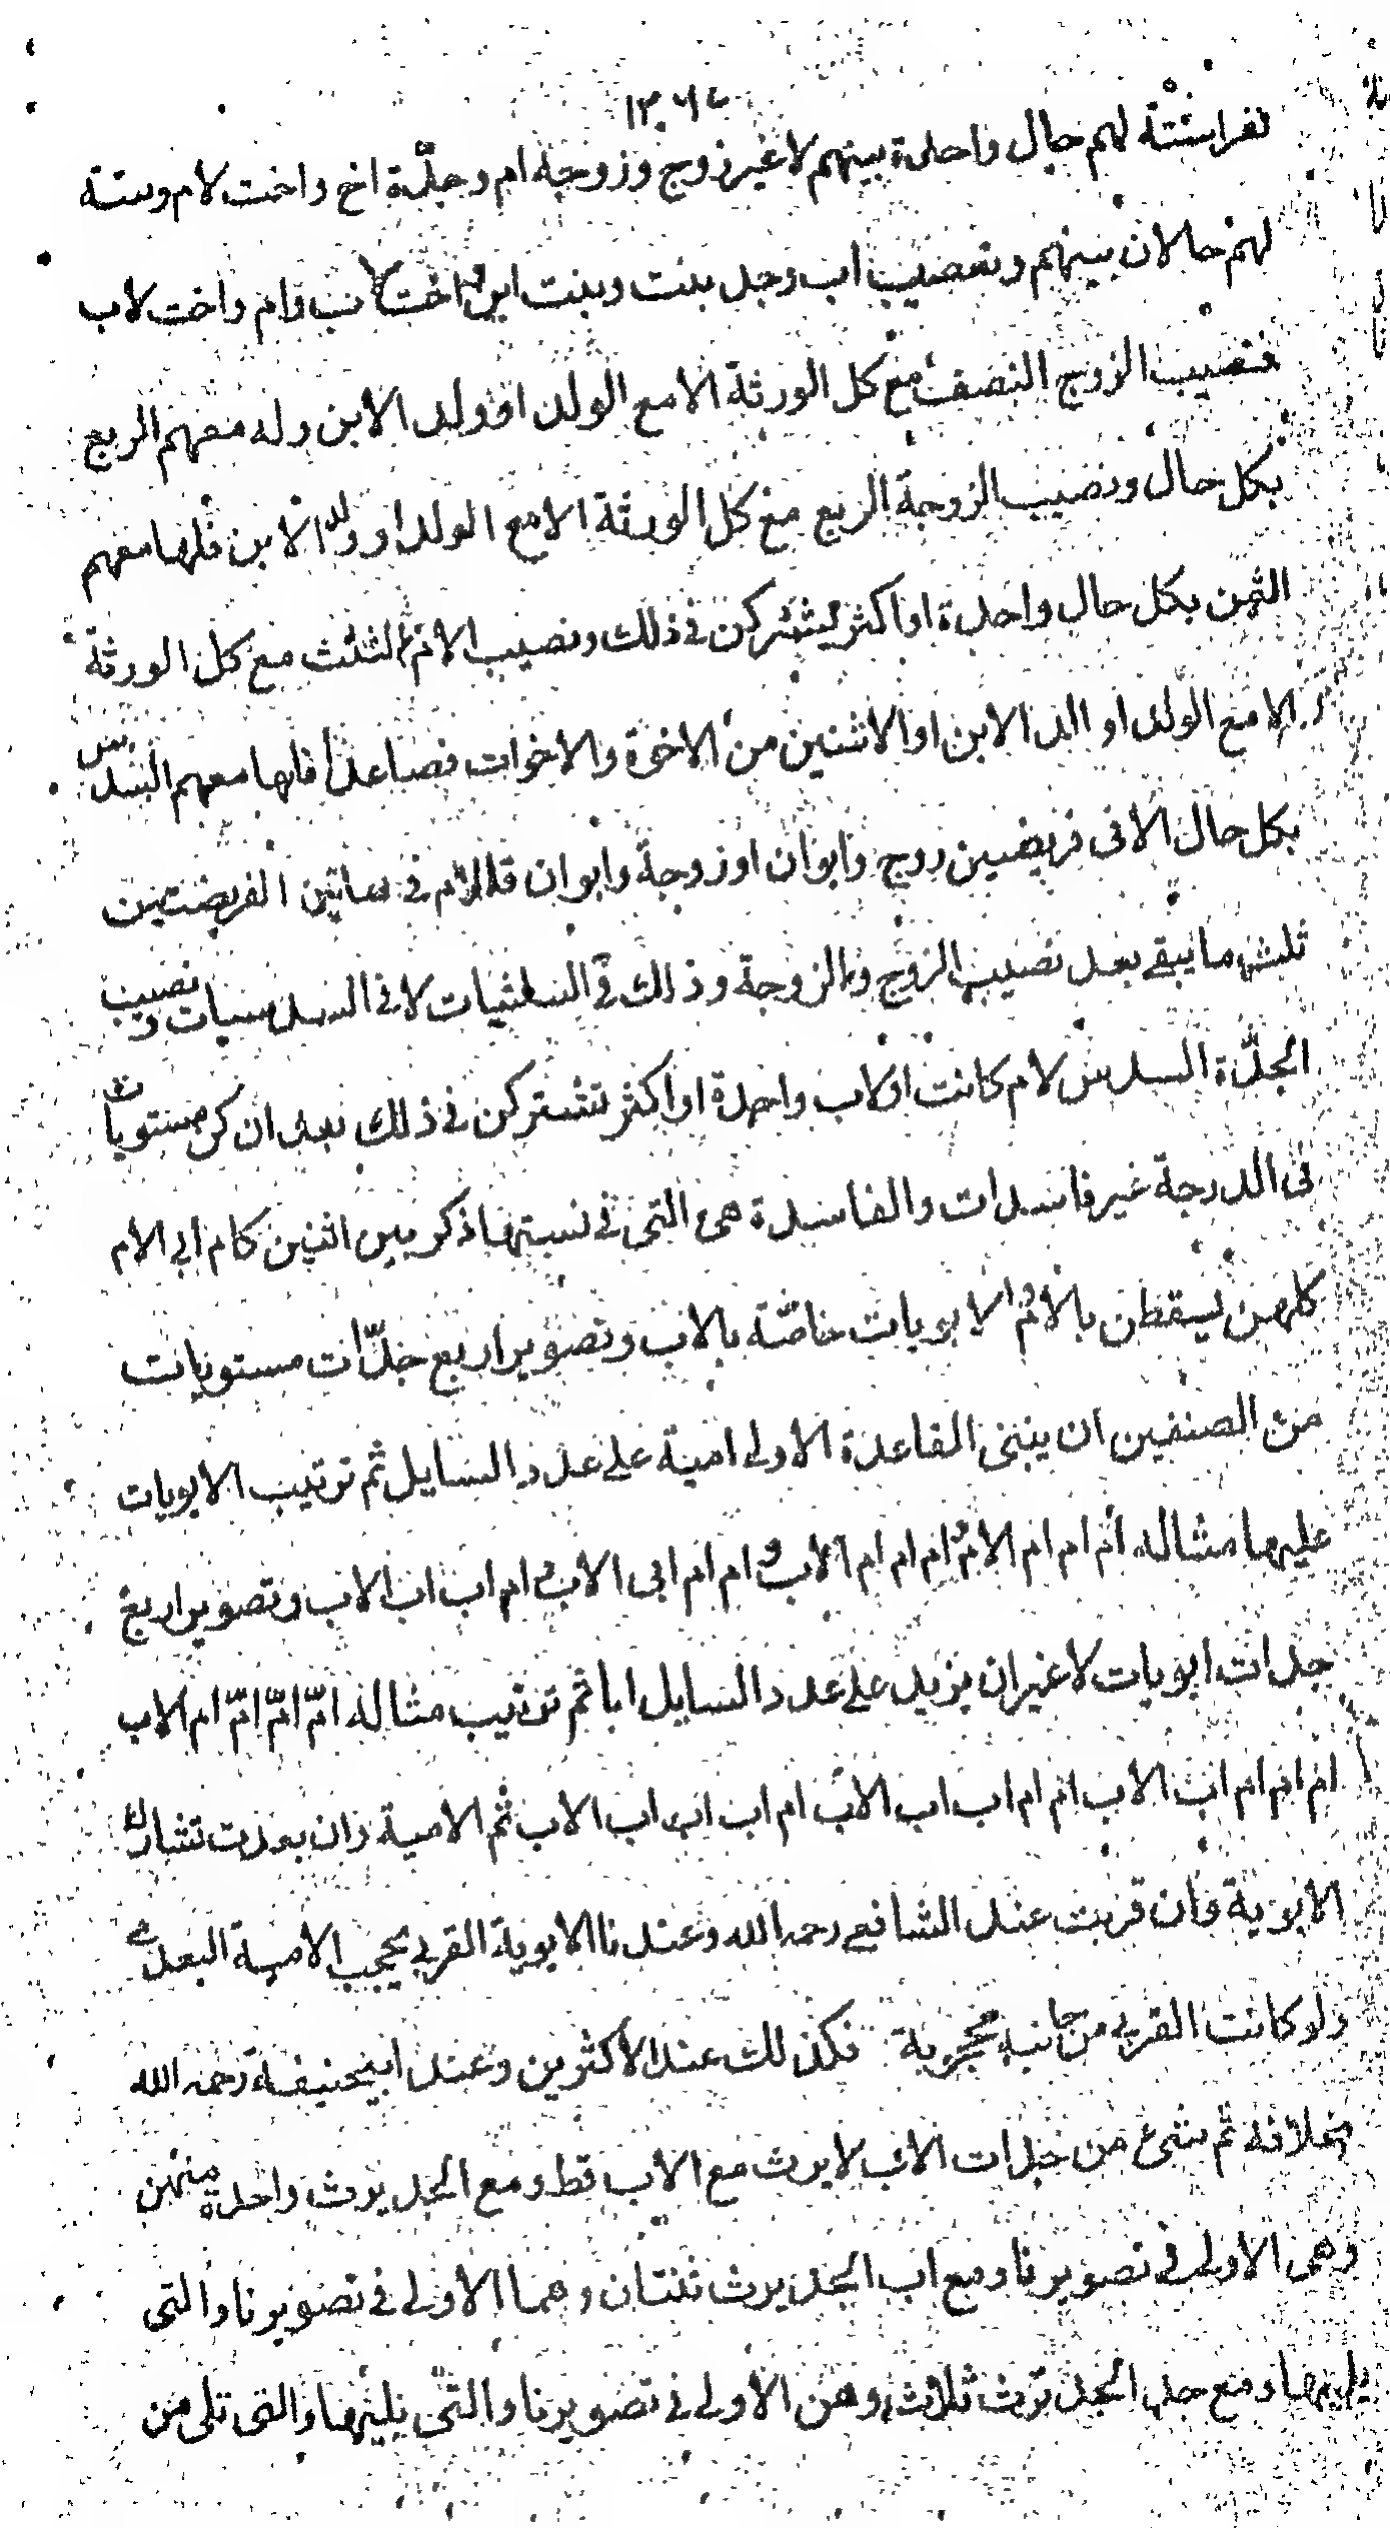 نفر ستة لهم حال واحدة بينهم لا غير زوج وزوجة ام وجدّة اخ واخت لام وستة
لهم حالان بينهم وتعصيب اب وجد بنت وبنت ابن واخت لاب وام واخت لاب
فنصيب الزوج النصف مع كل الورثة الا مع الولد او ولد الابن وله معهم الربع
بكل حال ونصيب الزوجة الربع مع كل الورثة الا مع الولد او ولد الابن فلها معهم
الثمن بكل حال واحدة او اكثر يشتركن في ذلك ونصيب الام الثلث مع كل الورثة
الا مع الولد او الد الابن او الاثنين من الاخوة والاخوات فصاعدا فلها معهم السدس
بكل حال الا في فريضين زوج وابوان او زوجة وابوان فللام في هاتين الفريضتين
ثلث ما يبقي بعد نصيب الزوج والزوجة وذلك في الستثيات لا في السدسيات ونصيب
الجدّة السدس لام كانت او لاب واحدة او اكثر تشتركن في ذلك بعد ان كن مستويات
في الدرجة غير فاسدات والفاسدة هي التي في نسبتها ذكر بين اثنين كام ابي الام
كلهن يسقطن بالام والابويات خاصّة بالاب وتصوير اربع جدّات مستويات
من الصنفين ان يبني القاعدة الاولي امية علي عدد السايل ثم ترتيب الابويات
عليها مثاله ام ام ام الام وام ام ام الاب وام ام ابي الاب وام اب اب الاب وتصوير اربع
جدات ابويات لا غير ان يزيد علي عدد السايل ابا ثم ترتيب مثاله امّ امّ امّ ام الاب
ام ام ام اب الاب ام ام اب اب الاب ام اب اب اب الاب ثم الامية وان بعدت تشارك
الابوية وان قربت عند الشافعي رحمه الله وعندنا الابوية القربي يحجب الامية البعدي
ولو كانت القربي من جانبه محجوبة فكذلك عند الاكثرين وعند ابيحنيفة رحمه الله
بخلافه ثم شيء من جدات الاب لا يرث مع الاب قط ومع الجد يرث واحدة منهن
وهي الاولي في تصويرنا ومع اب الجد يرث ثنتان وهما الاولي في تصويرنا والتي
يليها ومع جد الجد ترث ثلاث وهن الاولي في تصويرنا والتي يليها والتي تلي من